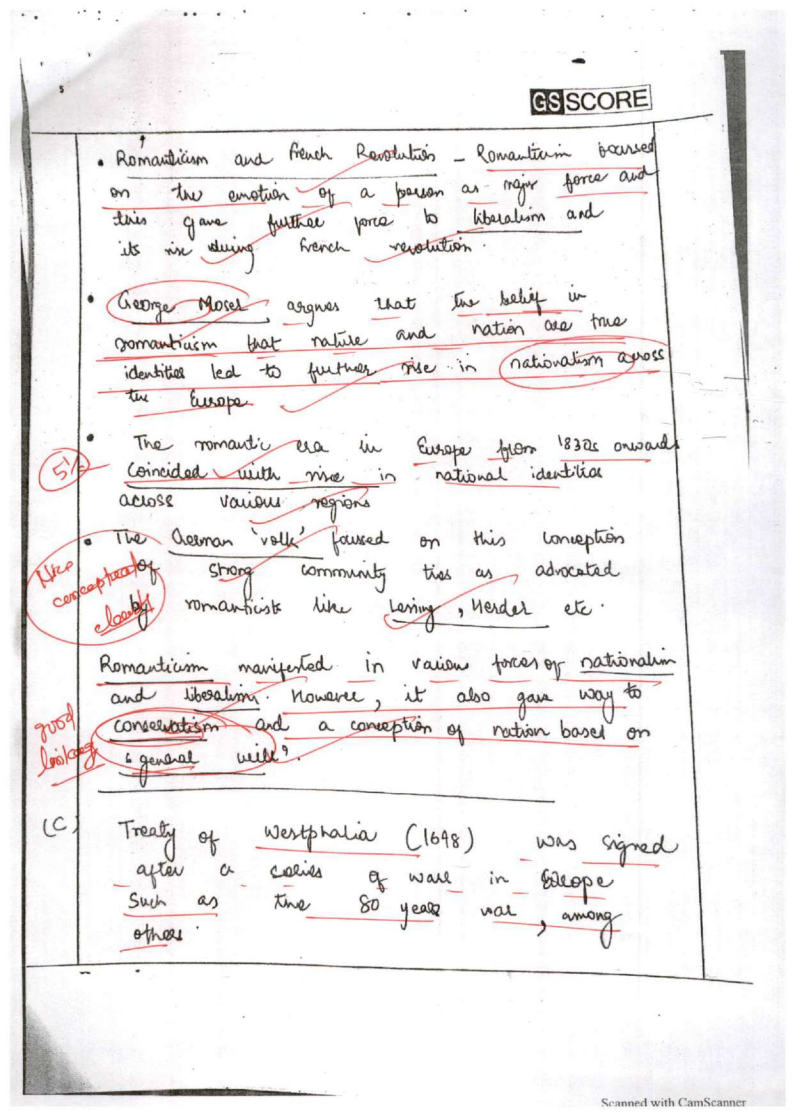 GS SCORE
• Romanticism and French Revolution - Romanticism focussed
on the emotion of a person as major force and
this gave further force to liberalism and
its rise during French revolution.
• George Moses argues that the belief in
romanticism that nature and nation are true
identities led to further rise in nationalism across
the Europe
• The romantic era in Europe from 1830s onwards
5½
coincided with rise in national identities
across various regions
• The German 'volk' focused on this conception
Nice
conceptual
clarity
of strong community ties as advocated
by romanticists like Lessing, Herder etc.
Romanticism manifested in various forces of nationalism
and liberalism. However, it also gave way to
good
linkages
conservatism and a conception of nation based on
"general will".
(C) Treaty of Westphalia (1648) was signed
after a series of wars in Europe
such as the 80 years war, among
others.
Scanned with CamScanner